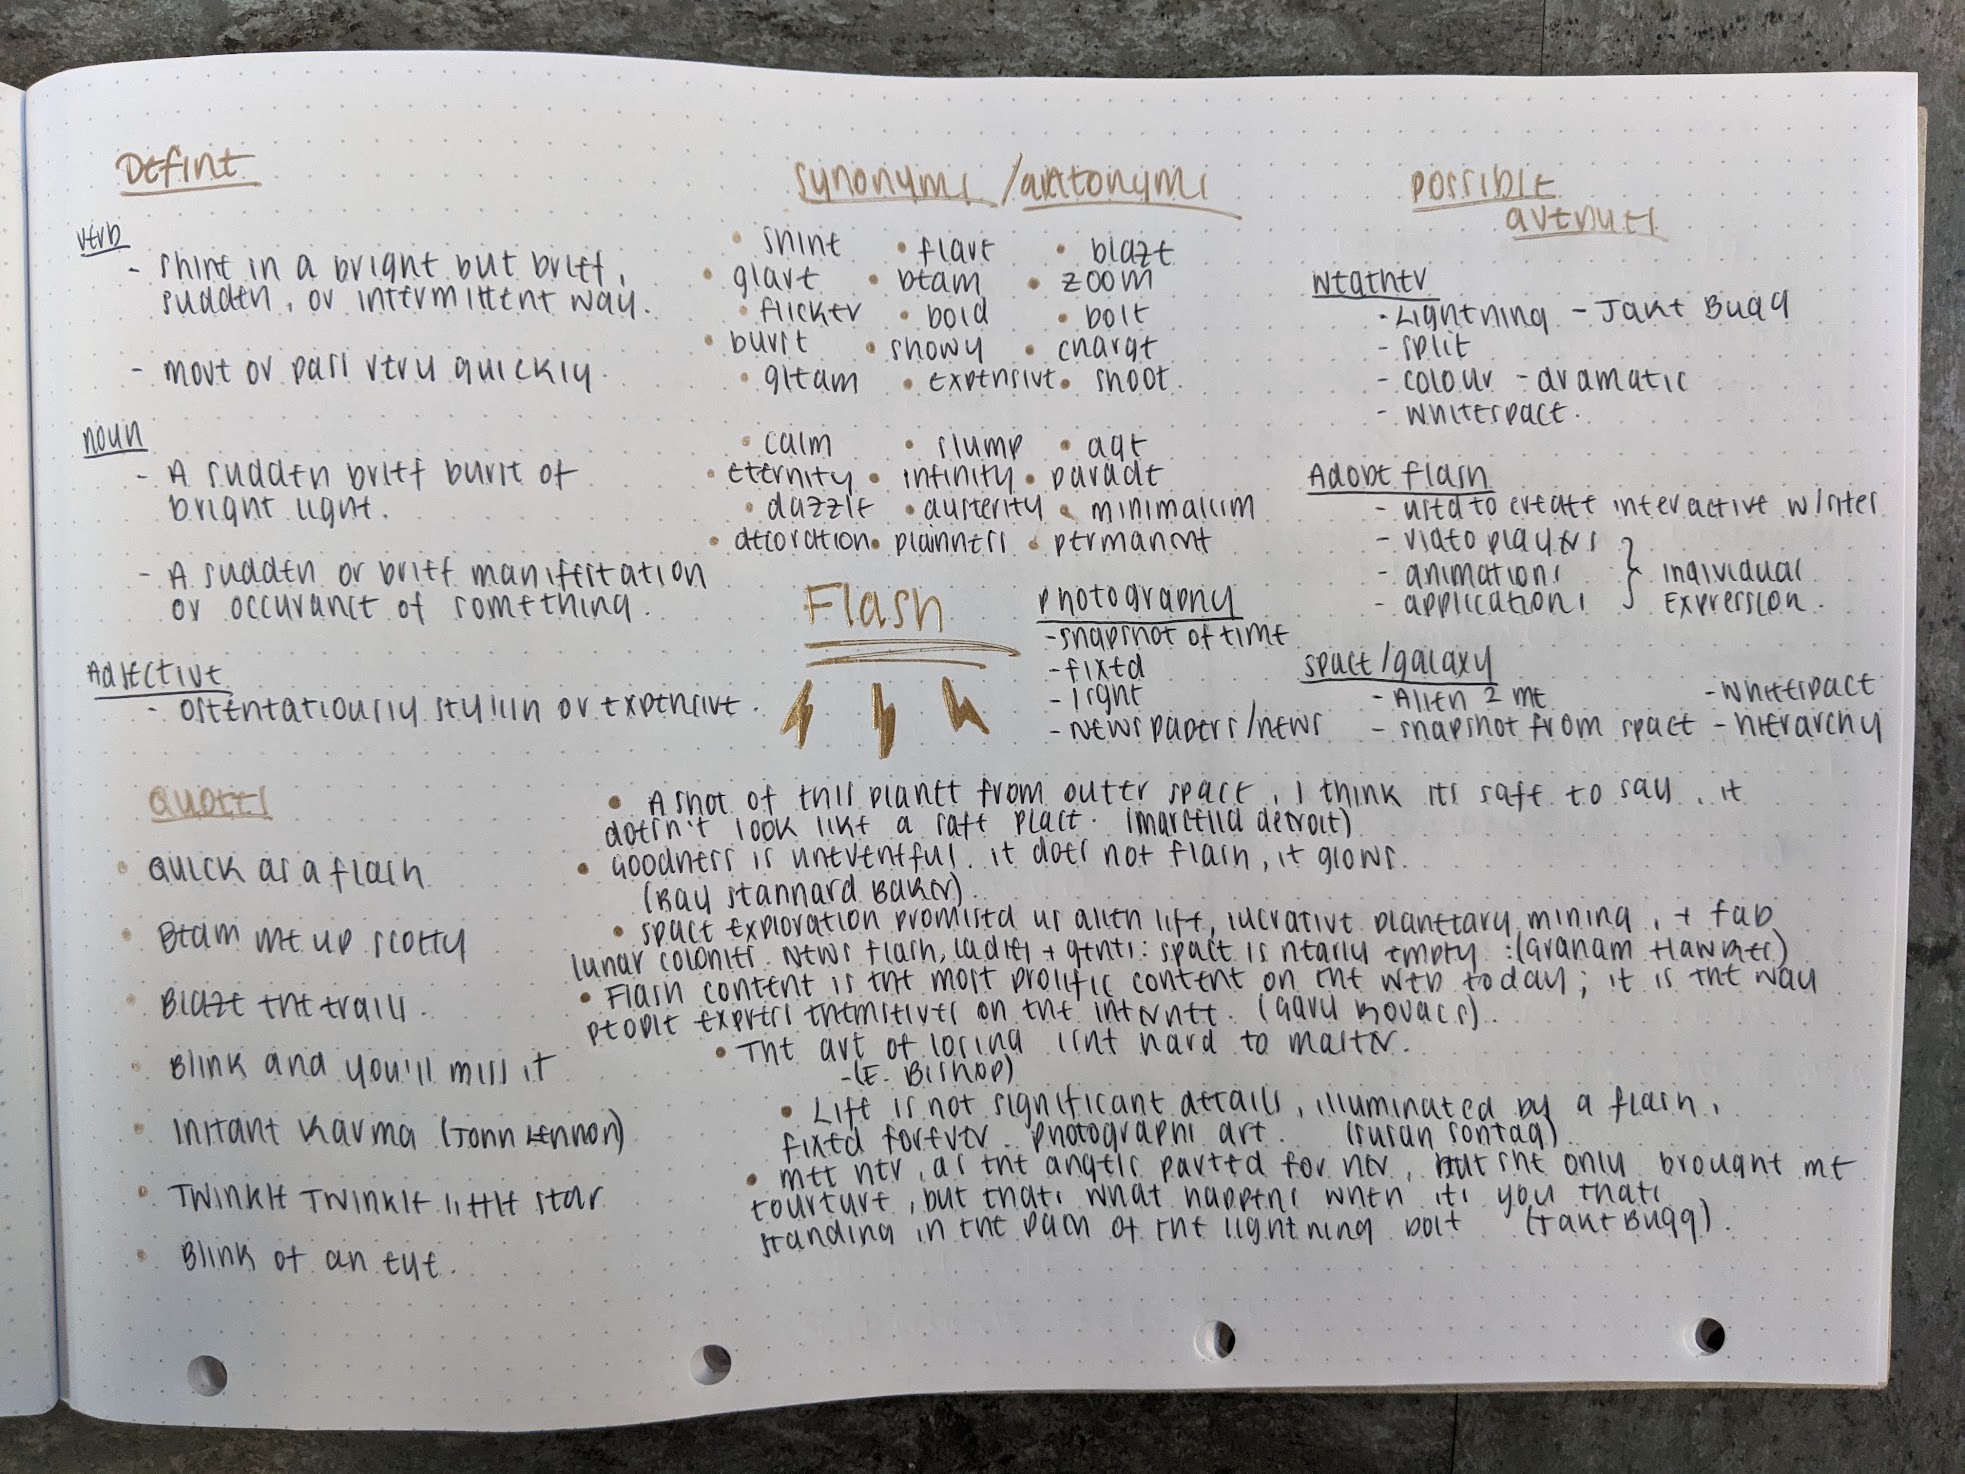 Define
verb
- shine in a bright but brief,
sudden, or intermittent way.
- move or pass very quickly.
noun
- A sudden brief burst of
bright light.
- A sudden or brief manifestation
or occurance of something.
Adjective
- ostentatiously stylish or expensive.
synonyms / antonyms
• shine • flare • blaze
• glare • beam • zoom
• flicker • bold • bolt
• burst • showy • charge
• gleam • expensive • shoot.
• calm • slump • age
• eternity • infinity • parade
• dazzle • austerity • minimalism
• decoration • plainness • permanent
Flash
photography
- snapshot of time
- fixed
- light
- Newspapers/news
possible
avenues
weather
- Lightning - Jake Bugg
- split
- colour - dramatic
- whitespace.
Adobe flash
- used to create interactive w/sites
- video players
- animations
- applications
individual
Expression.
space/galaxy
- Alien 2 me
- snapshot from space
- whitespace
- hierarchy
Quotes
• Quick as a flash
• Beam me up scotty
• Blaze the trails.
• Blink and you'll miss it
• Instant Karma (John Lennon)
• Twinkle Twinkle little star
• Blink of an eye.
• A shot of this planet from outer space, I think its safe to say, it
doesn't look like a safe place. (marcella detroit)
• Goodness is uneventful. it does not flash, it glows.
(Ray Stannard Baker).
• space exploration promised us alien life, lucrative planetary mining, + fab
lunar colonies. News flash, ladies + gents: space is nearly empty. (Graham Hawkes)
• Flash content is the most prolific content on the web today; it is the way
people express themselves on the internet. (Gary Kovacs).
• The art of losing isnt hard to master.
- (E. Bishop)
• Life is not significant details, illuminated by a flash,
fixed forever. photographs are. (susan sontag)
• met her, as the angels parted for her, but she only brought me
tourture, but thats what happens when its you thats
standing in the path of the lightning bolt (Jake Bugg).